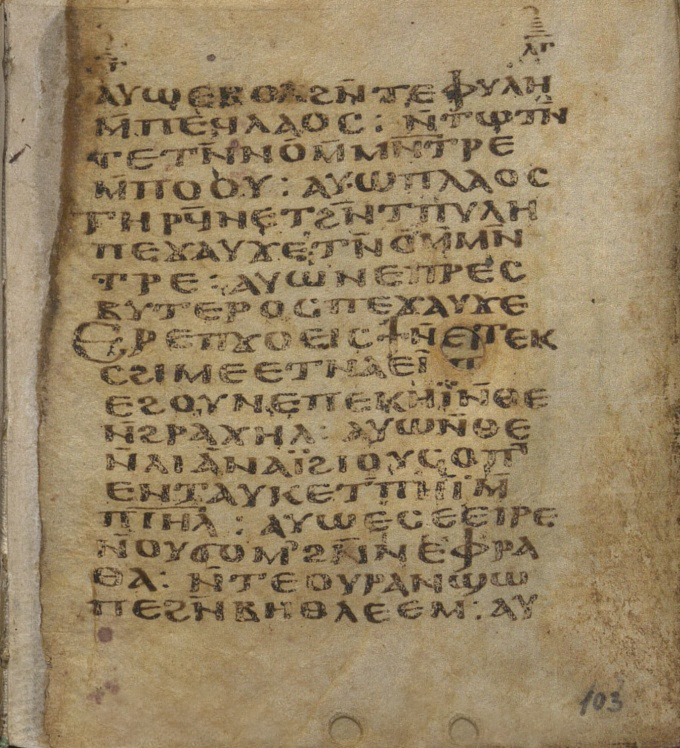 ⲗⲅ
ⲁⲩⲱⲉⲃⲟⲗϩⲛ̄ⲧⲉⲫⲩⲗⲏ
ⲙ̄ⲡⲉϥⲗⲁⲟⲥ: ⲛ̄ⲧⲱⲧⲛ̄
ⲧⲉⲧⲛ̄ⲛⲟⲙⲙⲛ̄ⲧⲣⲉ
ⲙ̄ⲡⲟⲟⲩ: ⲁⲩⲱⲡⲗⲁⲟⲥ
ⲧⲏⲣϥ̄ⲛⲉⲧϩⲛ̄ⲧⲡⲩⲗⲏ
ⲡⲉϫⲁⲩϫⲉⲧⲛ̄ⲟⲙ̄ⲙⲛ̄
ⲧⲣⲉ: ⲁⲩⲱⲛⲉⲡⲣⲉⲥ
ⲃⲩⲧⲉⲣⲟⲥⲡⲉϫⲁⲩϫⲉ
ⲉⲣⲉⲡϫⲟⲉⲓⲥϯⲛ̄ⲉⲓⲧⲉⲕ
ⲥϩⲓⲙⲉⲉⲧⲛⲁⲉⲓ̈
ⲉϩⲟⲩⲛⲉⲡⲉⲕⲏⲓ̈ⲛ̄ⲑⲉ
ⲛ̄ϩⲣⲁⲭⲏⲗ: ⲁⲩⲱⲛ̄ⲑⲉ
ⲛ̄ⲗⲓⲁ̄ⲛⲁⲓ̈ϩⲓⲟⲩⲥⲟⲡ
ⲉⲛⲧⲁⲩⲕⲉⲧⲡⲏⲓ̈ⲙ̄
ⲡⲓ̄ⲏ̄ⲗ̄: ⲁⲩⲱⲉⲥⲉⲉⲓⲣⲉ
ⲛ̄ⲟⲩϭⲟⲙϩⲛ̄ⲛⲉⲫⲣⲁ
ⲑⲁ: ⲛ̄ⲧⲉⲟⲩⲣⲁⲛϣⲱ
ⲡⲉϩⲛ̄ⲃⲏⲑⲗⲉⲉⲙ: ⲁⲩ
103